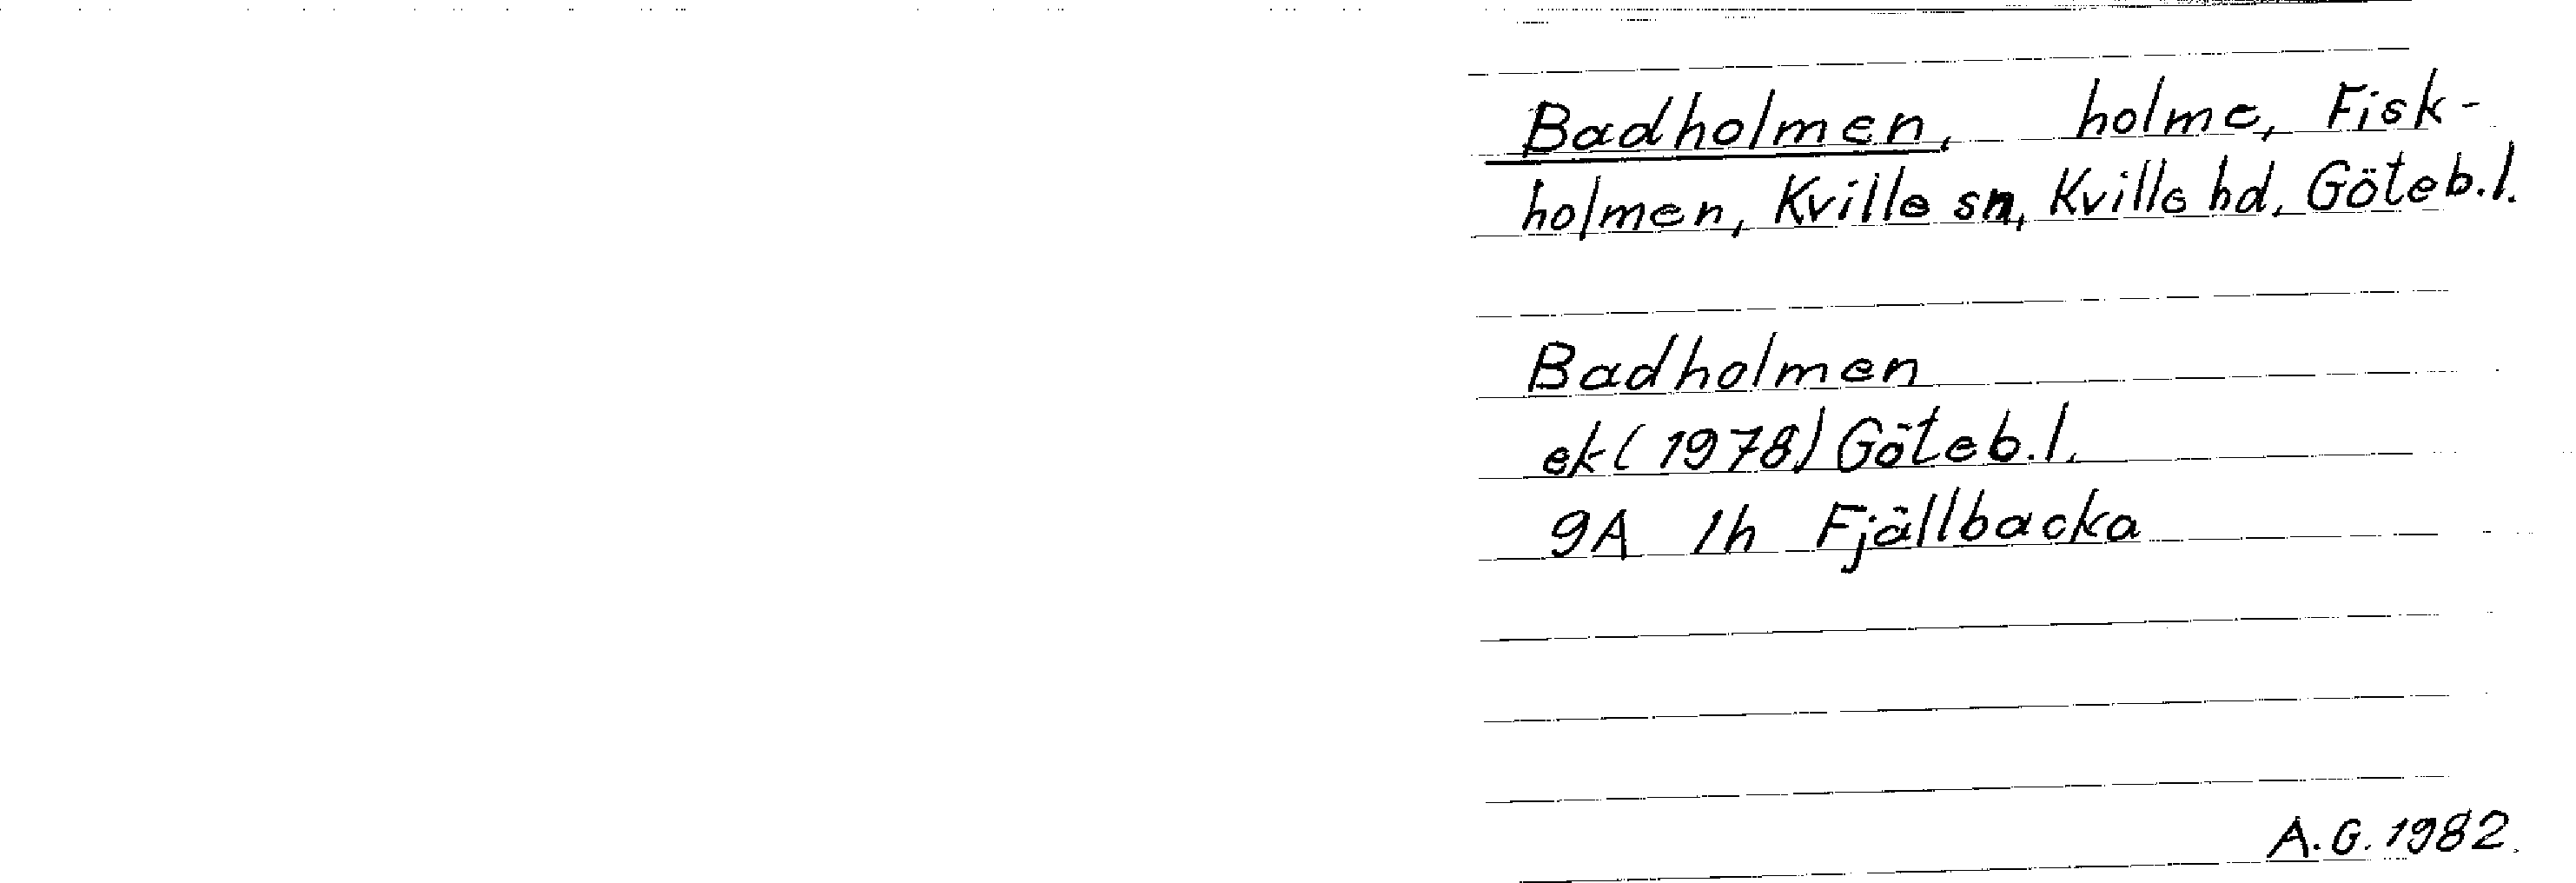 Badholmen, holme, Fisk-
holmen, Kville sn, Kville hd, Göteb.l.
Badholmen
ek (1978) Göteb.l.
9A 1h Fjällbacka
A.G. 1982.